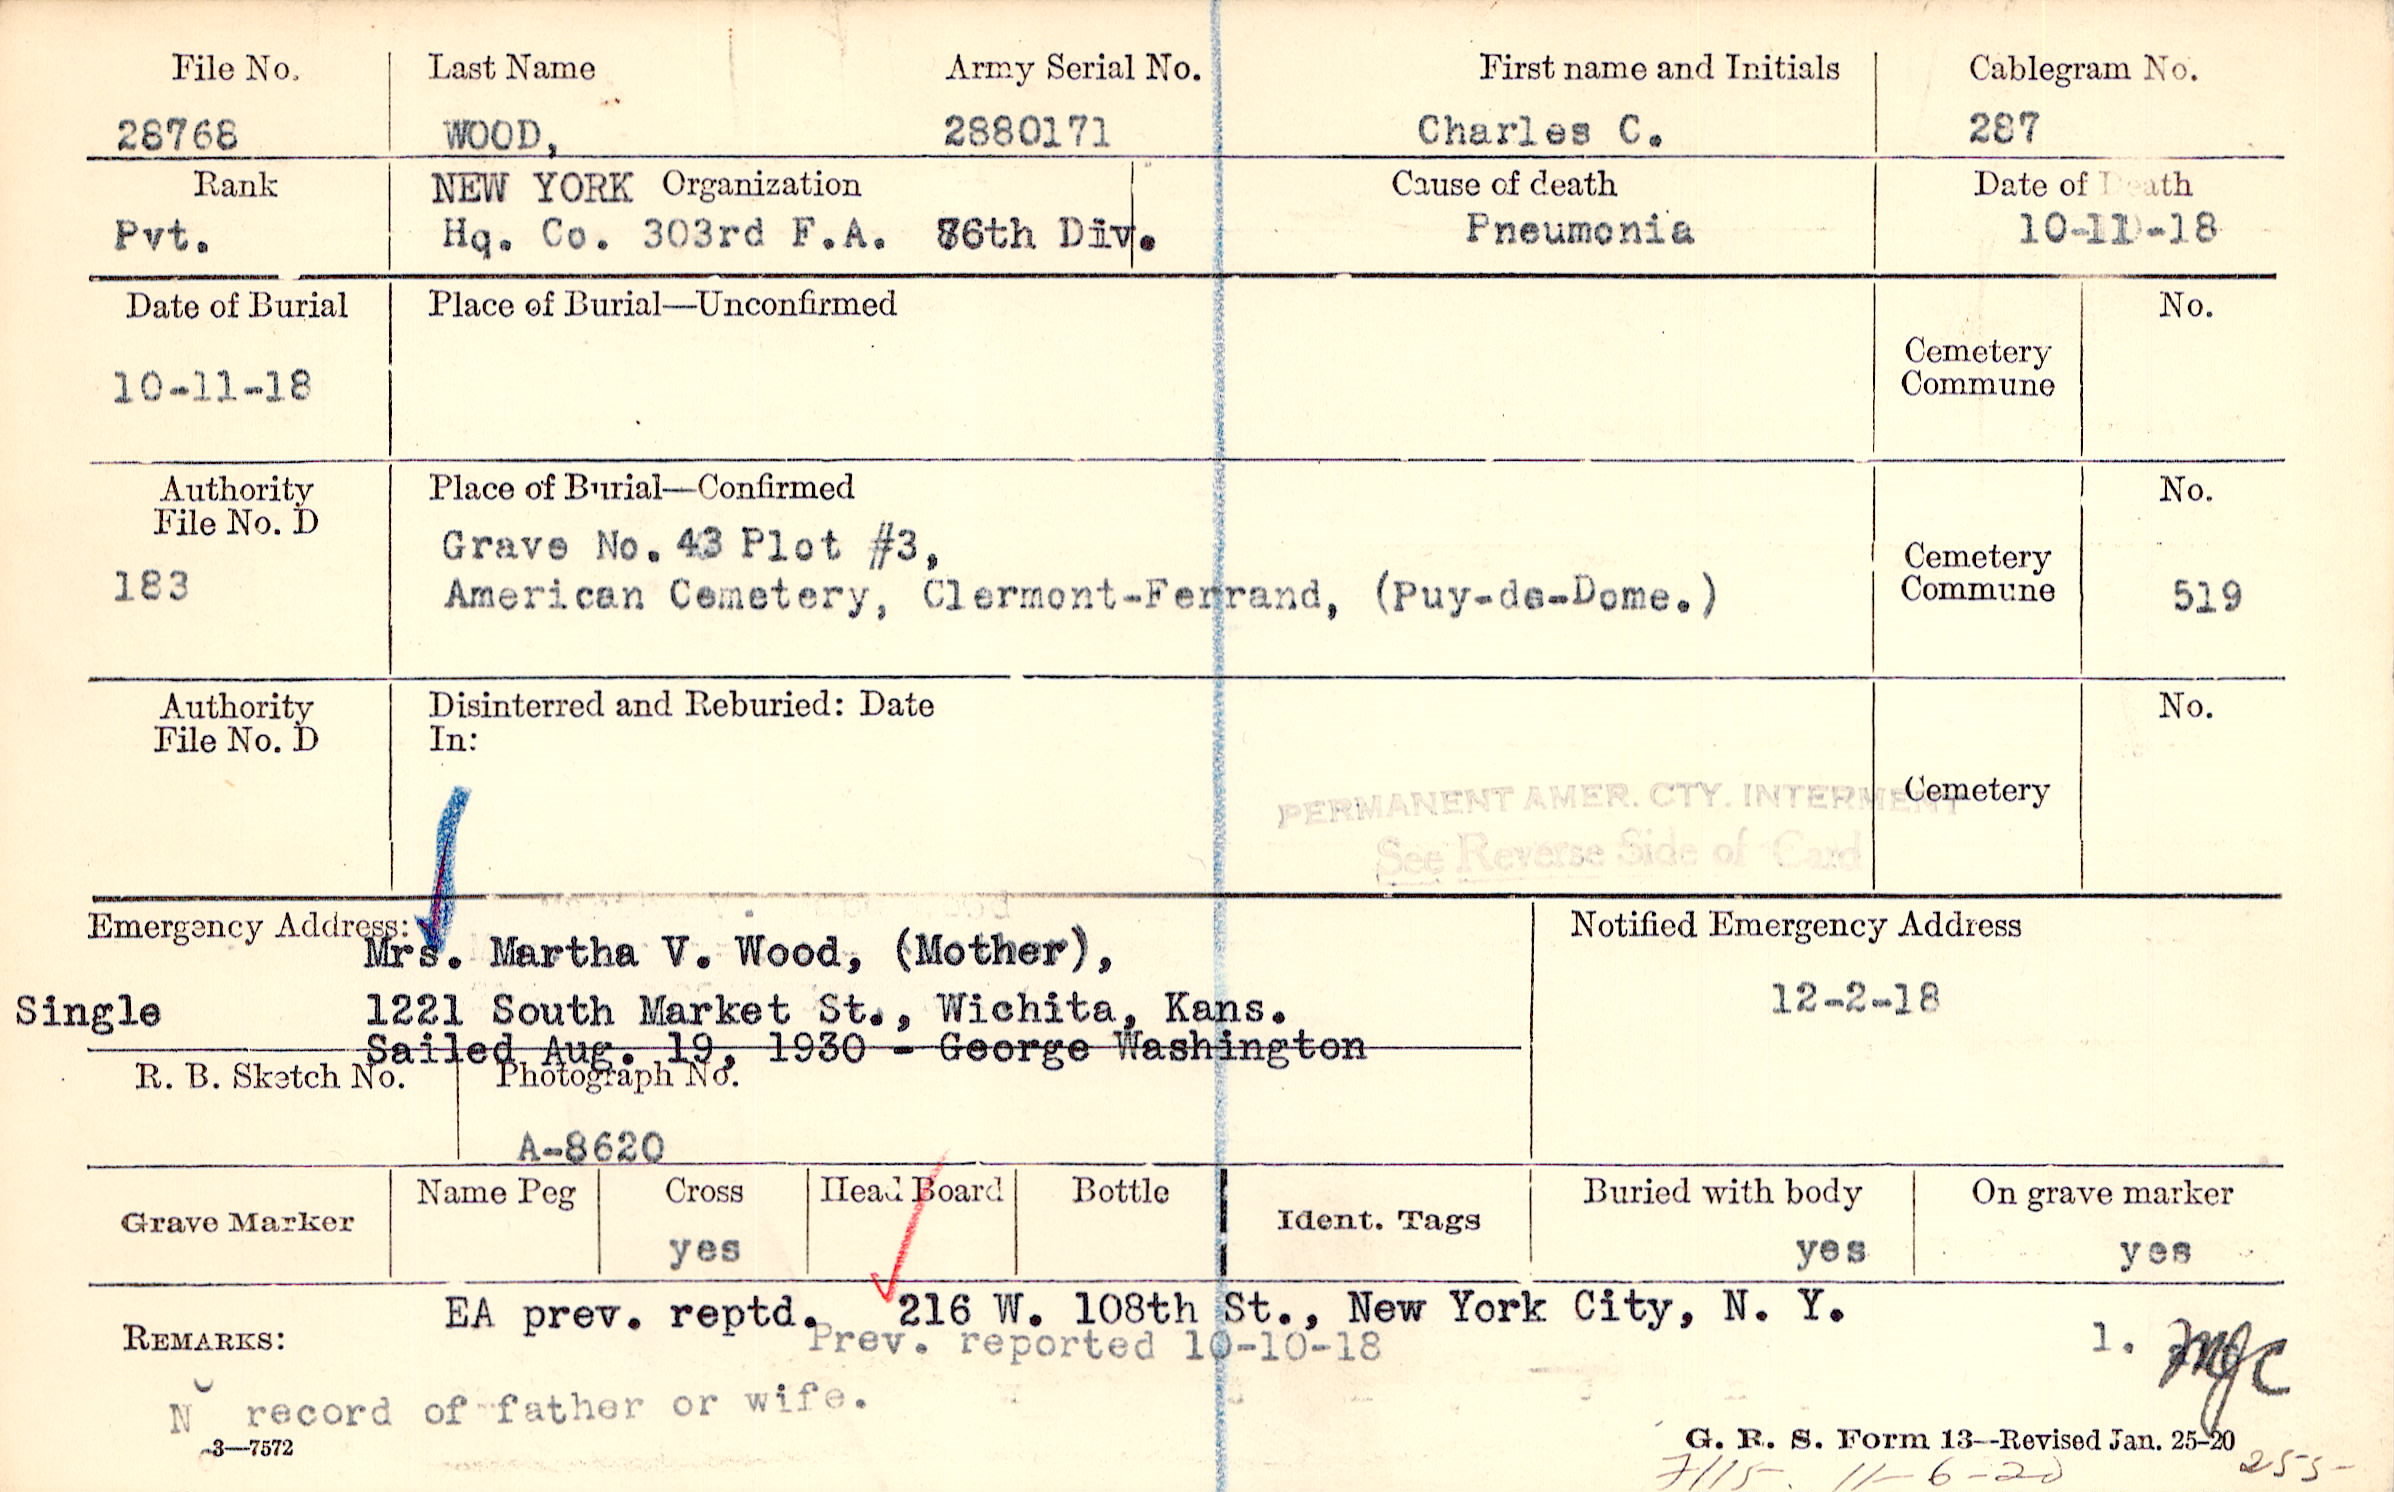 File No. Last Name Army Serial No. First name and Initials Cablegram No.
28768 WOOD, 2880171 Charles C. 287
Rank NEW YORK Organization Cause of death Date of Death
Pvt. Hq. Co. 303rd F.A. 76th Div. Pneumonia 10-11-18
Date of Burial Place of Burial—Unconfirmed No.
Cemetery
Commune
10-11-18
Authority Place of Burial—Confirmed No.
File No. D
Grave No. 43 Plot #3,
Cemetery
183 American Cemetery, Clermont-Ferrand, (Puy-de-Dome.) Commune 519
Authority Disinterred and Reburied: Date No.
File No. D In:
PERMANENT AMER. CTY. INTERMENT Cemetery
See Reverse Side of Card
Emergency Address: Notified Emergency Address
Mrs. Martha V. Wood, (Mother),
Single 1221 South Market St., Wichita, Kans. 12-2-18
Sailed Aug. 19, 1930 - George Washington
R. B. Sketch No. Photograph No.
A-8620
Grave Marker Name Peg Cross Head Board Bottle Ident. Tags Buried with body On grave marker
yes yes yes
EA prev. reptd. 216 W. 108th St., New York City, N. Y.
REMARKS: Prev. reported 10-10-18 1. MJC
N record of father or wife.
3—7572 G. R. S. Form 13—Revised Jan. 25-20
7115 11-6-20 255-